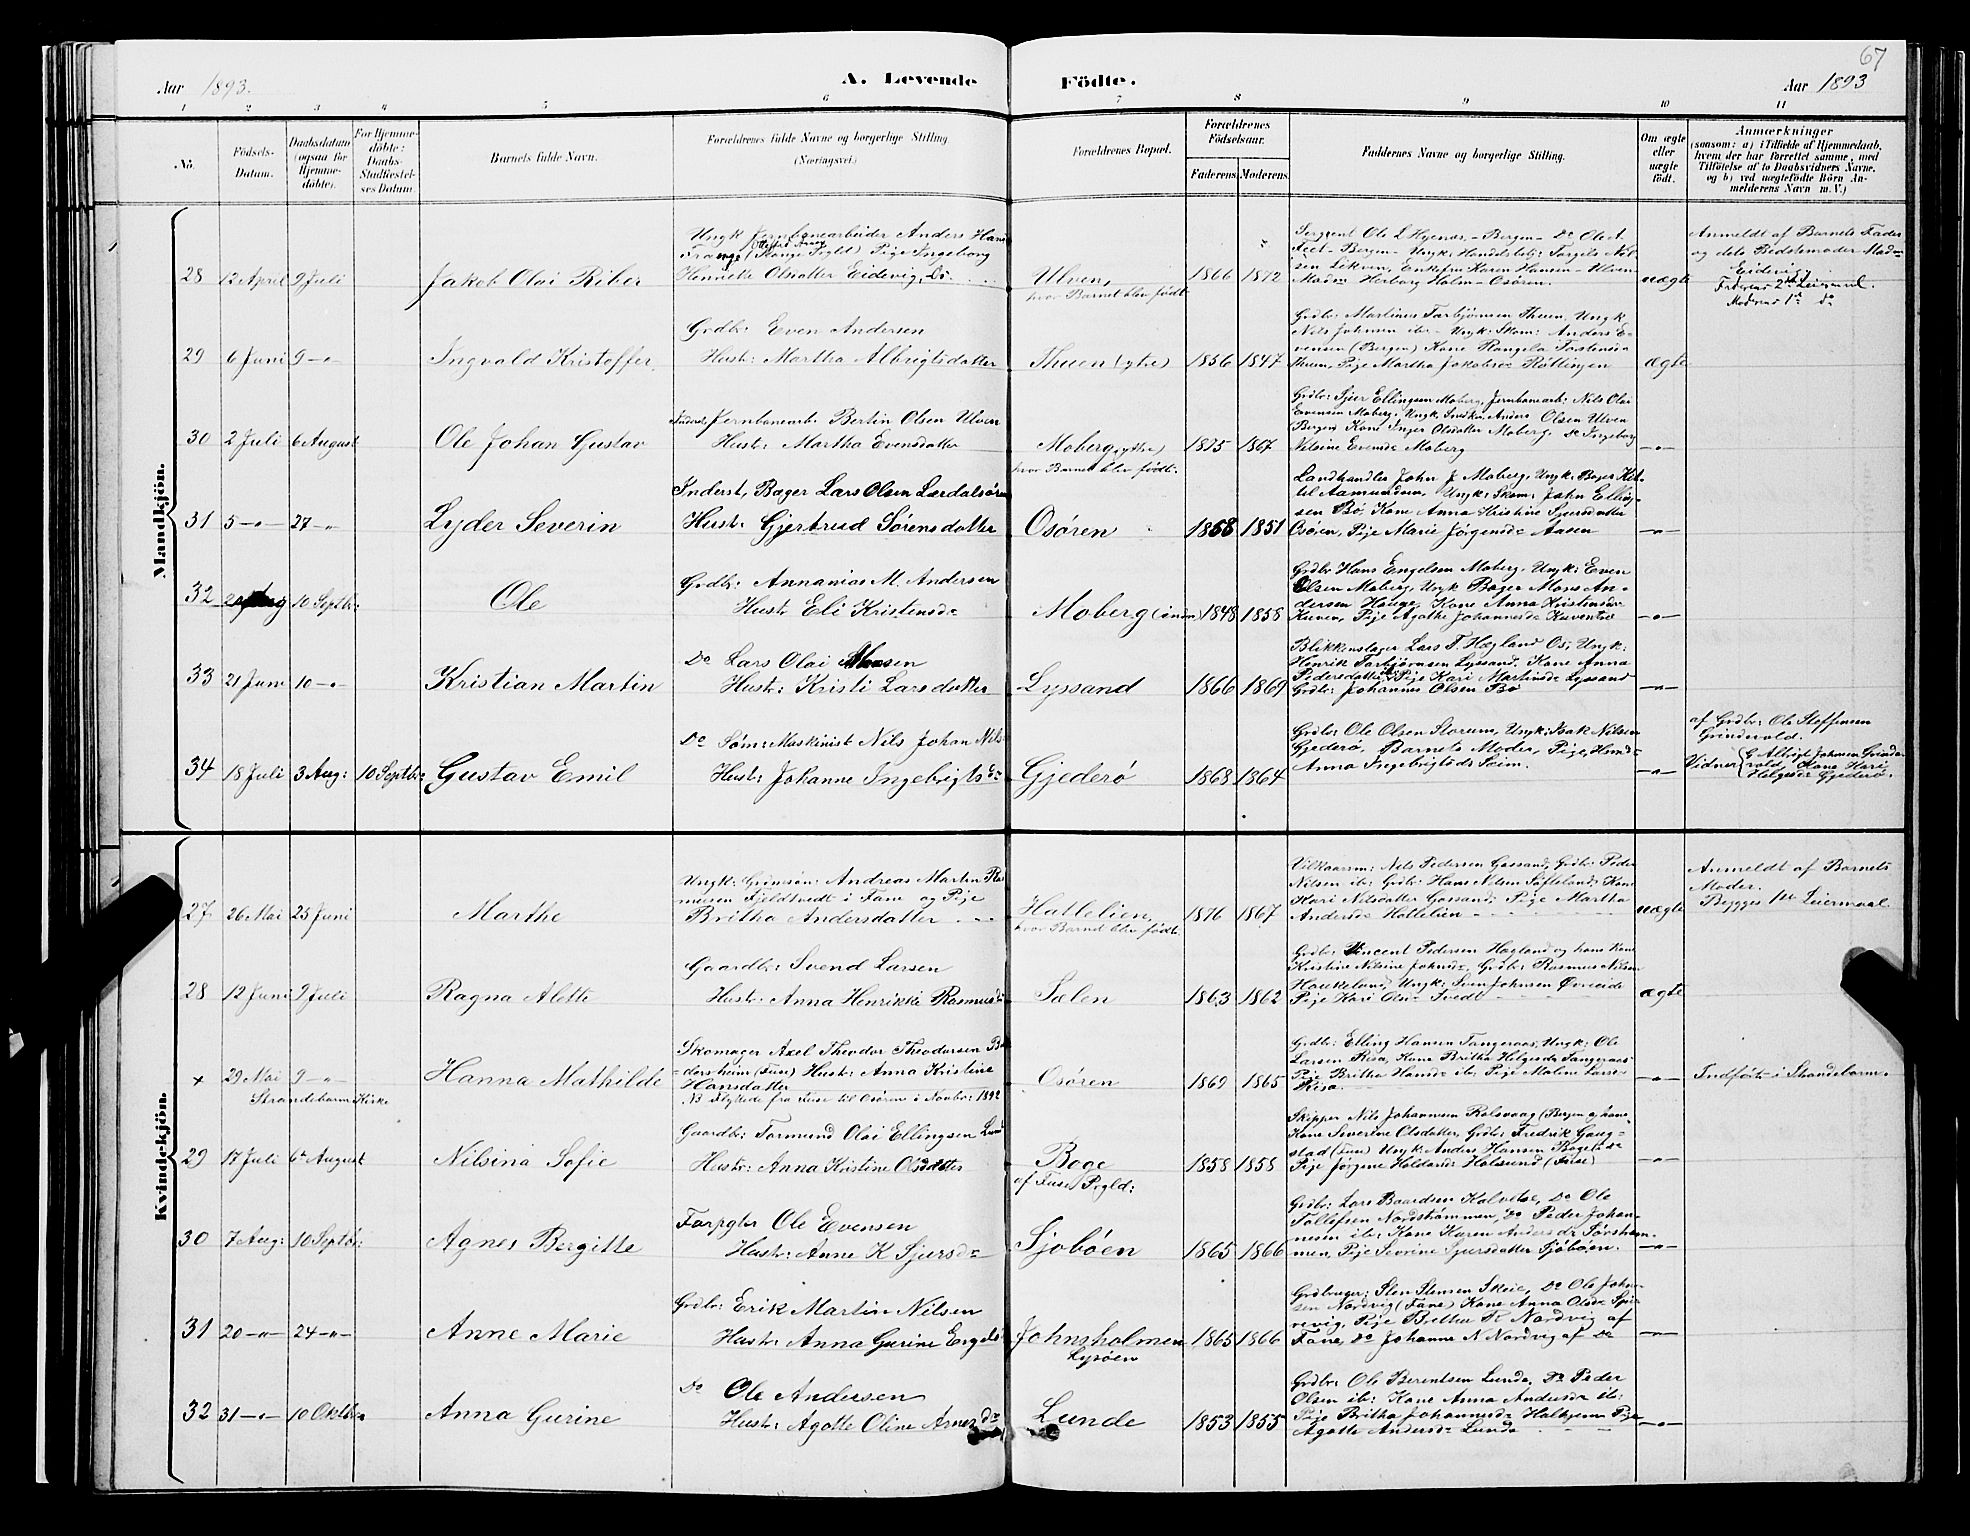 67
Aar 1893.
A. Levende
Födte.
Aar 1893
1 2 3 4 5 6 7 8 9 10 11
No.
Födsels-
Datum.
Daabsdatum
(ogsaa for
Hjemme-
döbte).
For Hjemme-
döbte:
Daabs-
Stadfæstel-
ses Datum
Barnets fulde Navn.
Forældrenes fulde Navne og borgerlige Stilling
(Næringsvei.)
Forældrenes Bopæl.
Forældrenes
Födselsaar.
Faderens
Moderens
Faddernes Navne og borgerlige Stilling.
Om ægte
eller
uægte
födt.
Anmærkninger
(saasom: a) i Tilfælde af Hjemmedaab,
hvem der har forrettet samme, med
Tilföielse af to Daabsvidners Navne,
og b) ved uægtefödte Börn An-
melderens Navn m. V.)
Mandkjön.
28 12 April 9 Juli
Jakob Olai Riber
Ungk Jernbanearbeider Anders Hans
Pige Ingeborg
Henrikke Olsdatter Eidevig, Do
Ulven,
hvor Barnet blev født
1866 1872
Sergeant Ole L Hjenæs, - Bergen - Do Ole A
Bergen - Ungk: Handelsbetj: Torgels Nil-
sen Likven, Enkefru Karen Hansen - Ulven
Mads Herborg Holm - Osören.
uægte
Anmeldt af Barnets Fader
og dets Bedstemoder Mad-
Eidevig.
Faderens 2det Leiermaal.
Moderens 1ste do
29 6 Juni 9 -"-
Ingvald Kristoffer,
Grdbr: Even Andersen
Hust: Martha Albrigtsdatter
Thuen (ytre)
1856 1847
Grdbr: Martinus Torbjørnsen Thuen, Ungk
Nils Johnsen ib: - Ungk: Skom: Anders E-
vensen (Bergen) Kone Rangela Tostensd
Thuen, Pige Martha Jakobsd: Røttingen
ægte
30 2 Juli 6 August
Ole Johan Gustav
Inderst, Jernbanearb: Bertin Olsen Ulven
Hust: Martha Evensdatter
Moberg (ytre)
hvor Barnet blev født:
1875 1867
Grdbr: Sjur Ellingsen Moberg, Jernbanearb: Nils Olai
Evensen Moberg, Ungk, Snedker, Anders Olsen Ulven
(Bergen) Kone Inger Olsdatter Moberg, do Ingeborg
Nilsine Evensd: Moberg
-"-
31 5 -"- 27 -"-
Lyder Severin
Inderst, Bager Lars Olsen Lærdalsören
Hust: Gjertrud Sørensdatter
Osören
1868 1851
Landhandler John J Moberg, Ungk: Bager Ket-
til Aamundsen, Ungk: Skom: John Elling-
sen Bø, Kone Anna Kristine Sjursdatter
Osören, Pige Marie Jørgensd: Aasen
-"-
32 10 Septbr:
Ole
Grdbr: Annanias M. Andersen
Hust: Eli Kristensd:
Moberg (indre)
1848 1858
Grdbr Hans Engelsen Moberg, Ungk: Even
Olsen Moberg, Ungk Bager Mons An-
dersen Hauge, Kone Anna Kristensd:
Kuven, Pige Agathe Johannesd: Kuventræ
-"-
33 21 Juni 10 -"-
Kristian Martin
Do Lars Olai
Hust: Kristi Larsdatter
Lyssand
1866 1869
Blikkenslager Lars T. Hægland Os; Ungk:
Henrik Torbjørnsen Lyssand, Kone Anna
Pedersdatter ib: Pige Kari Martinsd: Lyssand
Grdbr: Johannes Olsen Bø
-"-
34 18 Juli 3 Aug: 10 Septbr:
Gustav Emil
Do Sømr: Maskinist Nils Johan Nils-
Hust: Johanne Ingebrigtsd:
Gjederö
1868 1864
Grdbr Ole Olsen Storum, Ungk: Isak Nilsen
Gjederö, Barnets Moder, Pige, Hansd:
Anna Ingebrigtsd: Seim.
-"-
af Grdbr: Ole Steffensen
Grindevold.
Vidner: G. Albrigt Johnsen Grinde-
vold, Kone Kari
Helgesd: Gjederö.
Kvindekjön.
27 26 Mai 25 Juni
Marthe
Ungk: Grdmsøn: Andreas Martin Ras-
musen Fjeldtvedt i Fane og Pige
Britha Andersdatter
Hatlelien,
hvor Barnet blev født.
1876 1867
Vilkaarsm: Nils Pedersen Gassand, Grdbr: Peder
Nilsen ib: Grdbr: Hans Nilsen Søfteland, Kone
Kari Nilsdatter Gassand, Pige Martha
Andersd: Hatlelien
uægte
Anmeldt af Barnets
Moder.
Begges 1ste Leiermaal.
28 12 Juni 9 Juli
Ragna Alette
Gaardbr: Svend Larsen
Hust: Anna Henrikke Rasmusd:
Sælen
1863 1862
Grdbr: Vincent Pedersen Hagland og hans Kone
Kristine Nilsine Johnsd: Grdbr: Rasmus Nilsen
Haukeland, Ungk: Sven Johnsen Øvreeide
Pige Kari Olsd: Tvedt
ægte
× 29 Mai 9 -"-
Strandebarm Kirke
Hanna Mathilde
Skomager Axel Theodor Theodorsen Bal-
dersheim (Fuse) Hust: Anna Kristine
Hansdatter
NB flyttede fra Fuse til Osören i Novbr: 1892
Osören
1869 1865
Grdbr: Elling Hansen Tangeraas, Ungk: Ole
Larsen Risa, Kone Britha Helgesd: Tangeraas
Pige Britha Hansd: ib: Pige Malene Larsd:
Risa.
-"-
Indført i Strandebarm.
29 17 Juli 6te August
Nilsina Sofie
Gaardbr: Tormund Olai Ellingsen Lund
Hust: Anna Kristine Olsdatter
Boge
af Fuse Pgld:
1858 1858
Skipper Nils Johannesen Rolsvaag (Bergen og hans
Kone Severine Olsdatter, Grdbr: Fredrik Gaug-
stad (Fuse) Ungk: Anders Hansen Bogetsd:
Pige Jørgine Haldorsd: Holsund (Fuse)
-"-
30 7 Aug: 10 Septbr:
Agnes Bergitte
Forpgtr Ole Evensen
Hust: Anne K Sjursd:
Sjobøen
1865 1866
Grdbr: Lars Baardsen Kalvetræ, Do Ole
Tollefsen Nordstrømmen, Do Peder Johan-
nesen ib: Kone Karen Andersd: Sørstrøm-
men, Pige Sevrine Sjursdatter Sjøbøen.
-"-
31 20 -"- 24 -"-
Anne Marie
Grdbr: Erik Martin Nilsen
Hust: Anna Gurine Engels
Johnsholmen
Lysøen
1865 1866
Grdbruger: Sten Stensen Skeie, Do Ole Johan-
sen Nordvig (Fane) Kone Anna Olsd: Spi-
revig, Pige Britha T. Nordvig af
Fane, Do Johanne N Nordvig af do
-"-
32 31 -"- 10 Oktbr:
Anna Gurine
Do Ole Andersen
Hust: Agatte Oline Arnesd:
Lunde
1853 1855
Grdbr: Ole Berentsen Lunde, Do Peder
Olsen ib: Kone Anna Andersd: ib:
Pige Britha Johannesd: Halhjem Pige
Agatte Andersd: Lunde
-"-